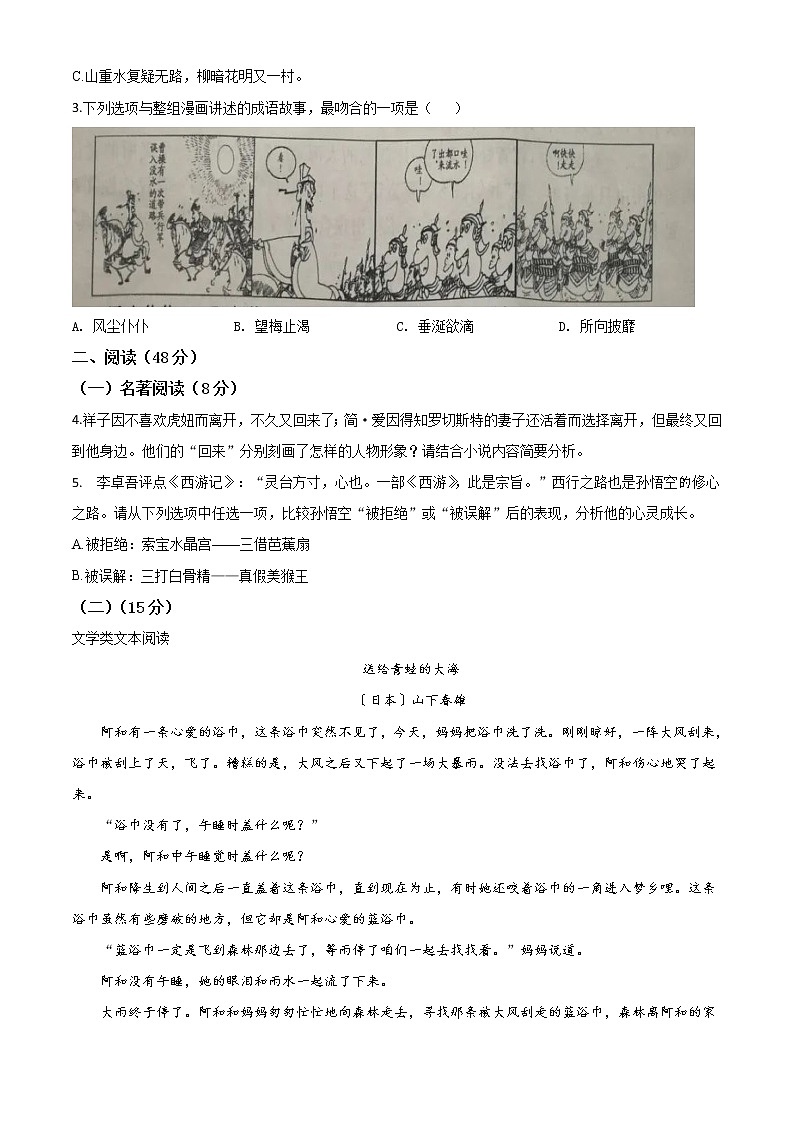 C.山重水复疑无路，柳暗花明又一村。
3.下列选项与整组漫画讲述的成语故事，最吻合的一项是（　　）
曹操有一次带兵行军，
误入没水的道路
看！
哇！
哇口都出了
！水流来
快快啊
走！
A. 风尘仆仆　B. 望梅止渴　C. 垂涎欲滴　D. 所向披靡
二、阅读（48分）
（一）名著阅读（8分）
4.祥子因不喜欢虎妞而离开，不久又回来了；简·爱因得知罗切斯特的妻子还活着而选择离开，但最终又回
到他身边。他们的“回来”分别刻画了怎样的人物形象？请结合小说内容简要分析。
5.　李卓吾评点《西游记》：“灵台方寸，心也。一部《西游》，此是宗旨。”西行之路也是孙悟空的修心
之路。请从下列选项中任选一项，比较孙悟空“被拒绝”或“被误解”后的表现，分析他的心灵成长。
A.被拒绝：索宝水晶宫——三借芭蕉扇
B.被误解：三打白骨精——真假美猴王
（二）（15分）
文学类文本阅读
送给青蛙的大海
〔日本〕山下春雄
阿和有一条心爱的浴巾，这条浴巾突然不见了，今天，妈妈把浴巾洗了洗。刚刚晾好，一阵大风刮来，
浴巾被刮上了天，飞了。糟糕的是，大风之后又下起了一场大暴雨。没法去找浴巾了，阿和伤心地哭了起
来。
“浴巾没有了，午睡时盖什么呢？”
是啊，阿和中午睡觉时盖什么呢？
阿和降生到人间之后一直盖着这条浴巾，直到现在为止，有时她还咬着浴巾的一角进入梦乡哩。这条
浴巾虽然有些磨破的地方，但它却是阿和心爱的蓝浴巾。
“蓝浴巾一定是飞到森林那边去了，等雨停了咱们一起去找找看。”妈妈说道。
阿和没有午睡，她的眼泪和雨水一起流了下来。
大雨终于停了。阿和和妈妈匆匆忙忙地向森林走去，寻找那条被大风刮走的蓝浴巾，森林离阿和的家